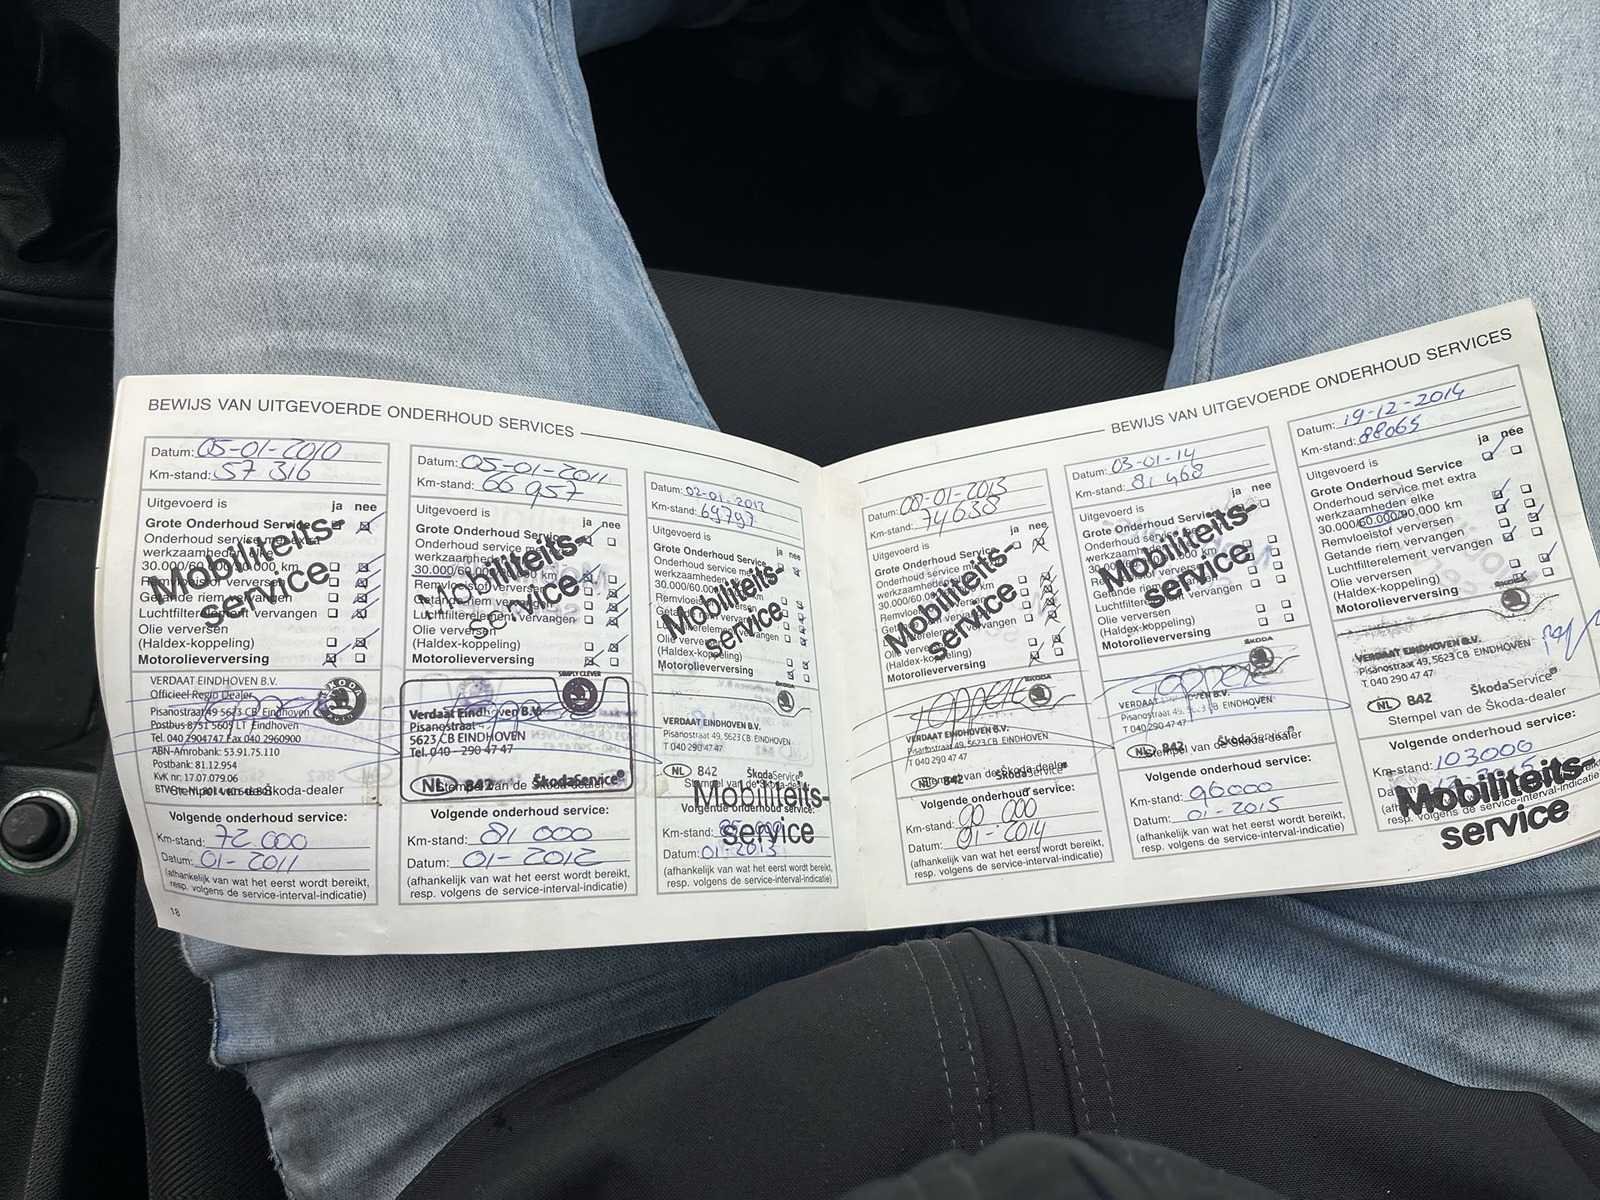 BEWIJS VAN UITGEVOERDE ONDERHOUD SERVICES
Datum: 05-01-2010
Km-stand: 57 316
Uitgevoerd is ja nee
Grote Onderhoud Service
Onderhoud service met extra
werkzaamheden elke
30.000/60.000/90.000 km
Remvloeistof verversen
Getande riem vervangen
Luchtfilterelement vervangen
Olie verversen
(Haldex-koppeling)
Motorolieverversing
Mobiliteits-
service
VERDAAT EINDHOVEN B.V.
Officieel Regio Dealer
Pisanostraat 49 5623 CB Eindhoven
Postbus 8751 5605 LT Eindhoven
Tel. 040 2904747 Fax 040 2960900
ABN-Amrobank: 53.91.75.110
Postbank: 81.12.954
KvK nr: 17.07.079.06
Stempel van de Skoda-dealer
ŠKODA
Volgende onderhoud service:
Km-stand: 72.000
Datum: 01-2011
(afhankelijk van wat het eerst wordt bereikt,
resp. volgens de service-interval-indicatie)
18
Datum: 05-01-2011
Km-stand: 66 957
Uitgevoerd is ja nee
Grote Onderhoud Service
Onderhoud service met
werkzaamheden
30.000/60.000/90.000 km
Remvloeistof verversen
Getande riem vervangen
Luchtfilterelement vervangen
Olie verversen
(Haldex-koppeling)
Motorolieverversing
Mobiliteits-
service
SIMPLY CLEVER
Verdaat Eindhoven B.V.
Pisanostraat
5623 CB EINDHOVEN
Tel. 040 - 290 47 47
NL 842 ŠkodaService®
Stempel van de Skoda-dealer
Volgende onderhoud service:
Km-stand: 81 000
Datum: 01-2012
(afhankelijk van wat het eerst wordt bereikt,
resp. volgens de service-interval-indicatie)
Datum: 02-01-2012
Km-stand: 69797
Uitgevoerd is ja nee
Grote Onderhoud Service
Onderhoud service met
werkzaamheden
30.000/60.000
Remvloeistof
Getande riem
Luchtfilterelement vervangen
Olie verversen
(Haldex-koppeling)
Motorolieverversing
Mobiliteits-
service
VERDAAT EINDHOVEN B.V.
Pisanostraat 49, 5623 CB EINDHOVEN
T 040 290 47 47
NL 842 ŠkodaService®
Stempel van de
Mobiliteits-
service
Volgende onderhoud service:
Km-stand:
Datum: 01-2013
(afhankelijk van wat het eerst wordt bereikt,
resp. volgens de service-interval-indicatie)
BEWIJS VAN UITGEVOERDE ONDERHOUD SERVICES
Datum: 08-01-2013
Km-stand: 74638
Uitgevoerd is ja nee
Grote Onderhoud Service
Onderhoud service met
werkzaamheden
30.000/60.000
Remvloeistof verversen
Getande riem vervangen
Luchtfilterelement vervangen
Olie verversen
(Haldex-koppeling)
Motorolieverversing
Mobiliteits-
service
VERDAAT EINDHOVEN B.V.
Pisanostraat 49, 5623 CB EINDHOVEN
T 040 290 47 47
NL 842 ŠkodaService®
Stempel van de Skoda-dealer
Volgende onderhoud service:
Km-stand: 90 000
Datum: 01-2014
(afhankelijk van wat het eerst wordt bereikt,
resp. volgens de service-interval-indicatie)
Datum: 03-01-14
Km-stand: 81 468
Uitgevoerd is ja nee
Grote Onderhoud Service
Onderhoud service
werkzaamheden
30.000/60.000 km
Remvloeistof verversen
Getande riem vervangen
Luchtfilterelement vervangen
Olie verversen
(Haldex-koppeling)
Motorolieverversing
Mobiliteits-
service
ŠKODA
VERDAAT EINDHOVEN B.V.
Pisanostraat 49, 5623 CB EINDHOVEN
T 040 290 47 47
NL 842 ŠkodaService®
Stempel van de Skoda-dealer
Volgende onderhoud service:
Km-stand: 96000
Datum: 01-2015
(afhankelijk van wat het eerst wordt bereikt,
resp. volgens de service-interval-indicatie)
Datum: 19-12-2014
Km-stand: 88065
Uitgevoerd is ja nee
Grote Onderhoud Service
Onderhoud service met extra
werkzaamheden elke
30.000/60.000/90.000 km
Remvloeistof verversen
Getande riem vervangen
Luchtfilterelement vervangen
Olie verversen
(Haldex-koppeling)
Motorolieverversing
VERDAAT EINDHOVEN B.V.
Pisanostraat 49, 5623 CB EINDHOVEN
T 040 290 47 47
NL 842 ŠkodaService®
Stempel van de Škoda-dealer
Volgende onderhoud service:
Km-stand: 103000
Mobiliteits-
service